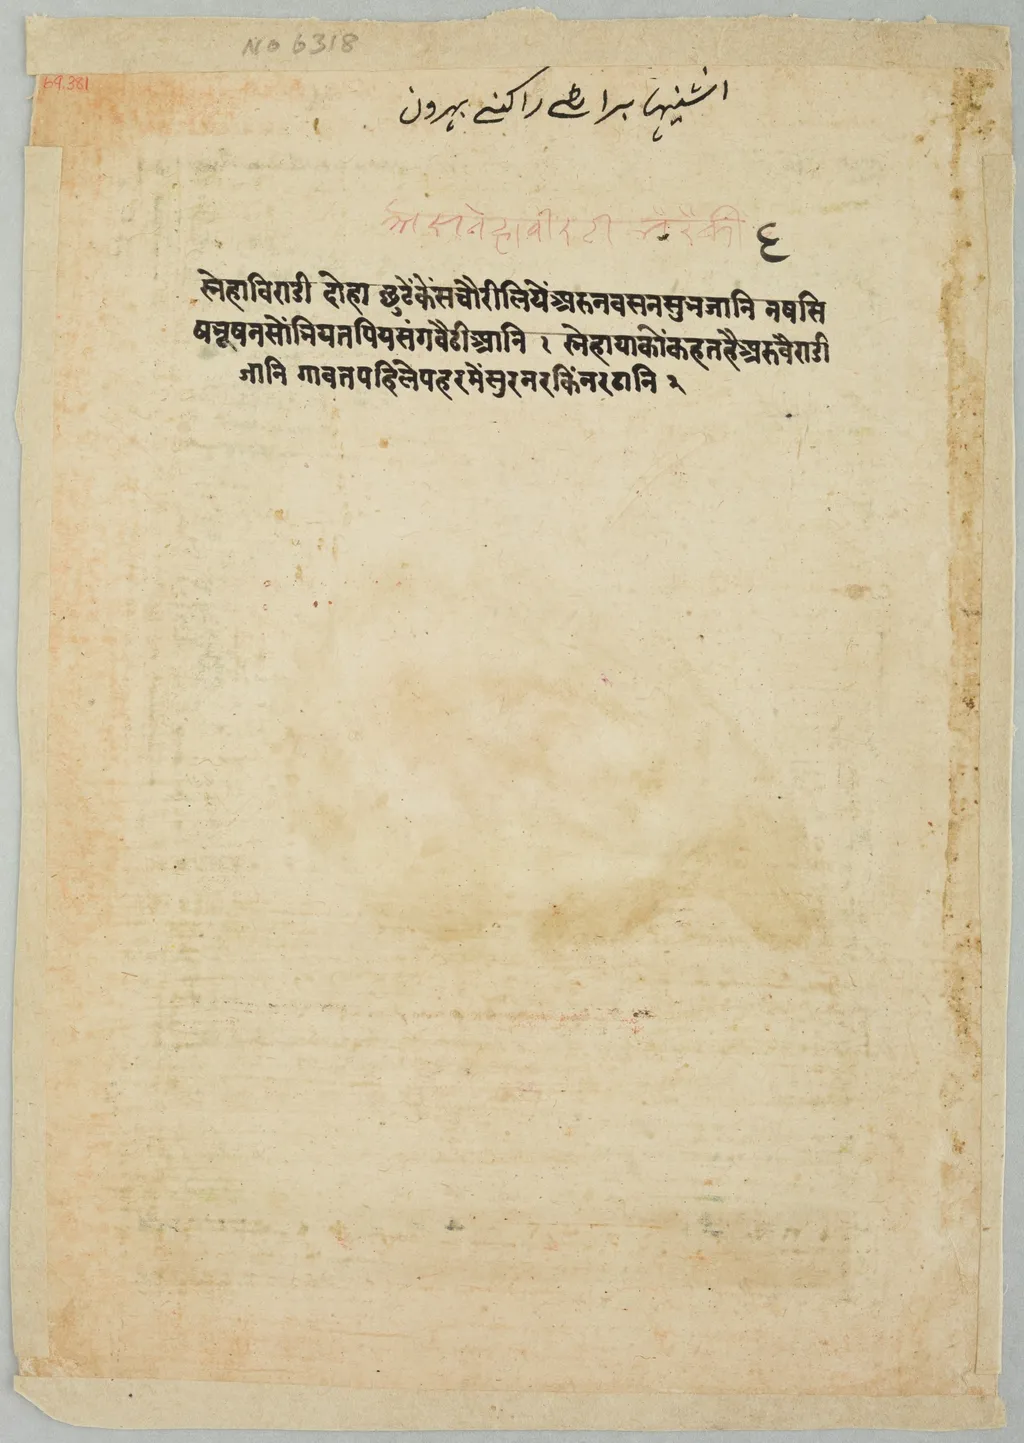 NO 6318
69.381
اشنیہا براٹے راگنے بهرون
६
स्नेहाविराडी दोहा छुटेंकेंसचौरीलियेंअरुनवसनसुभजानि नषसि
षभूषनसोंनियतपियसंगवैठीआनि १ स्नेहायाकोंकहतहैअरुवैराडी
जानि गावतपहिलेपहरमेंसुरनरकिंनरटानि २